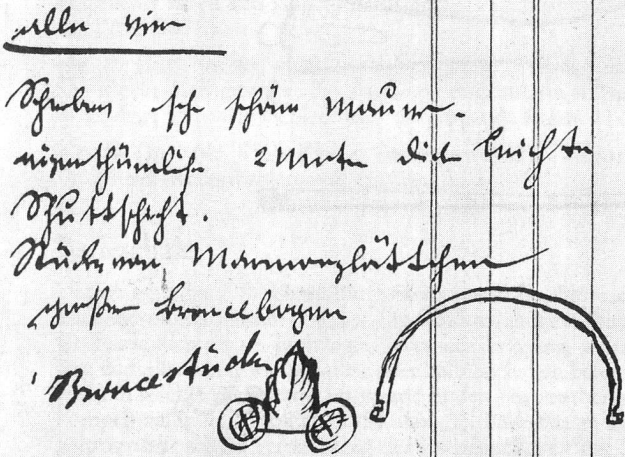 alle vier
Scherben sehr schöne Mauer.
eigenthümliche 2 Meter dicke leichte
Schuttschicht.
Stücke von Marmorplättchen
großer Broncebogen
Broncestücke